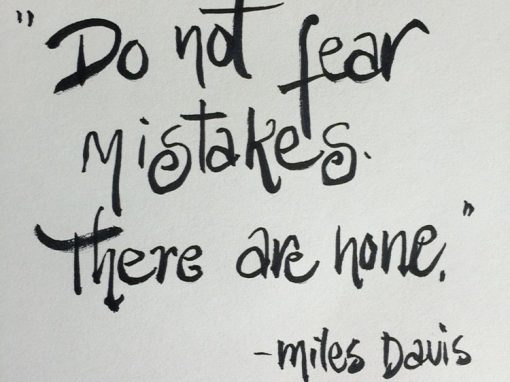 "Do not fear
mistakes.
There are none."
-Miles Davis